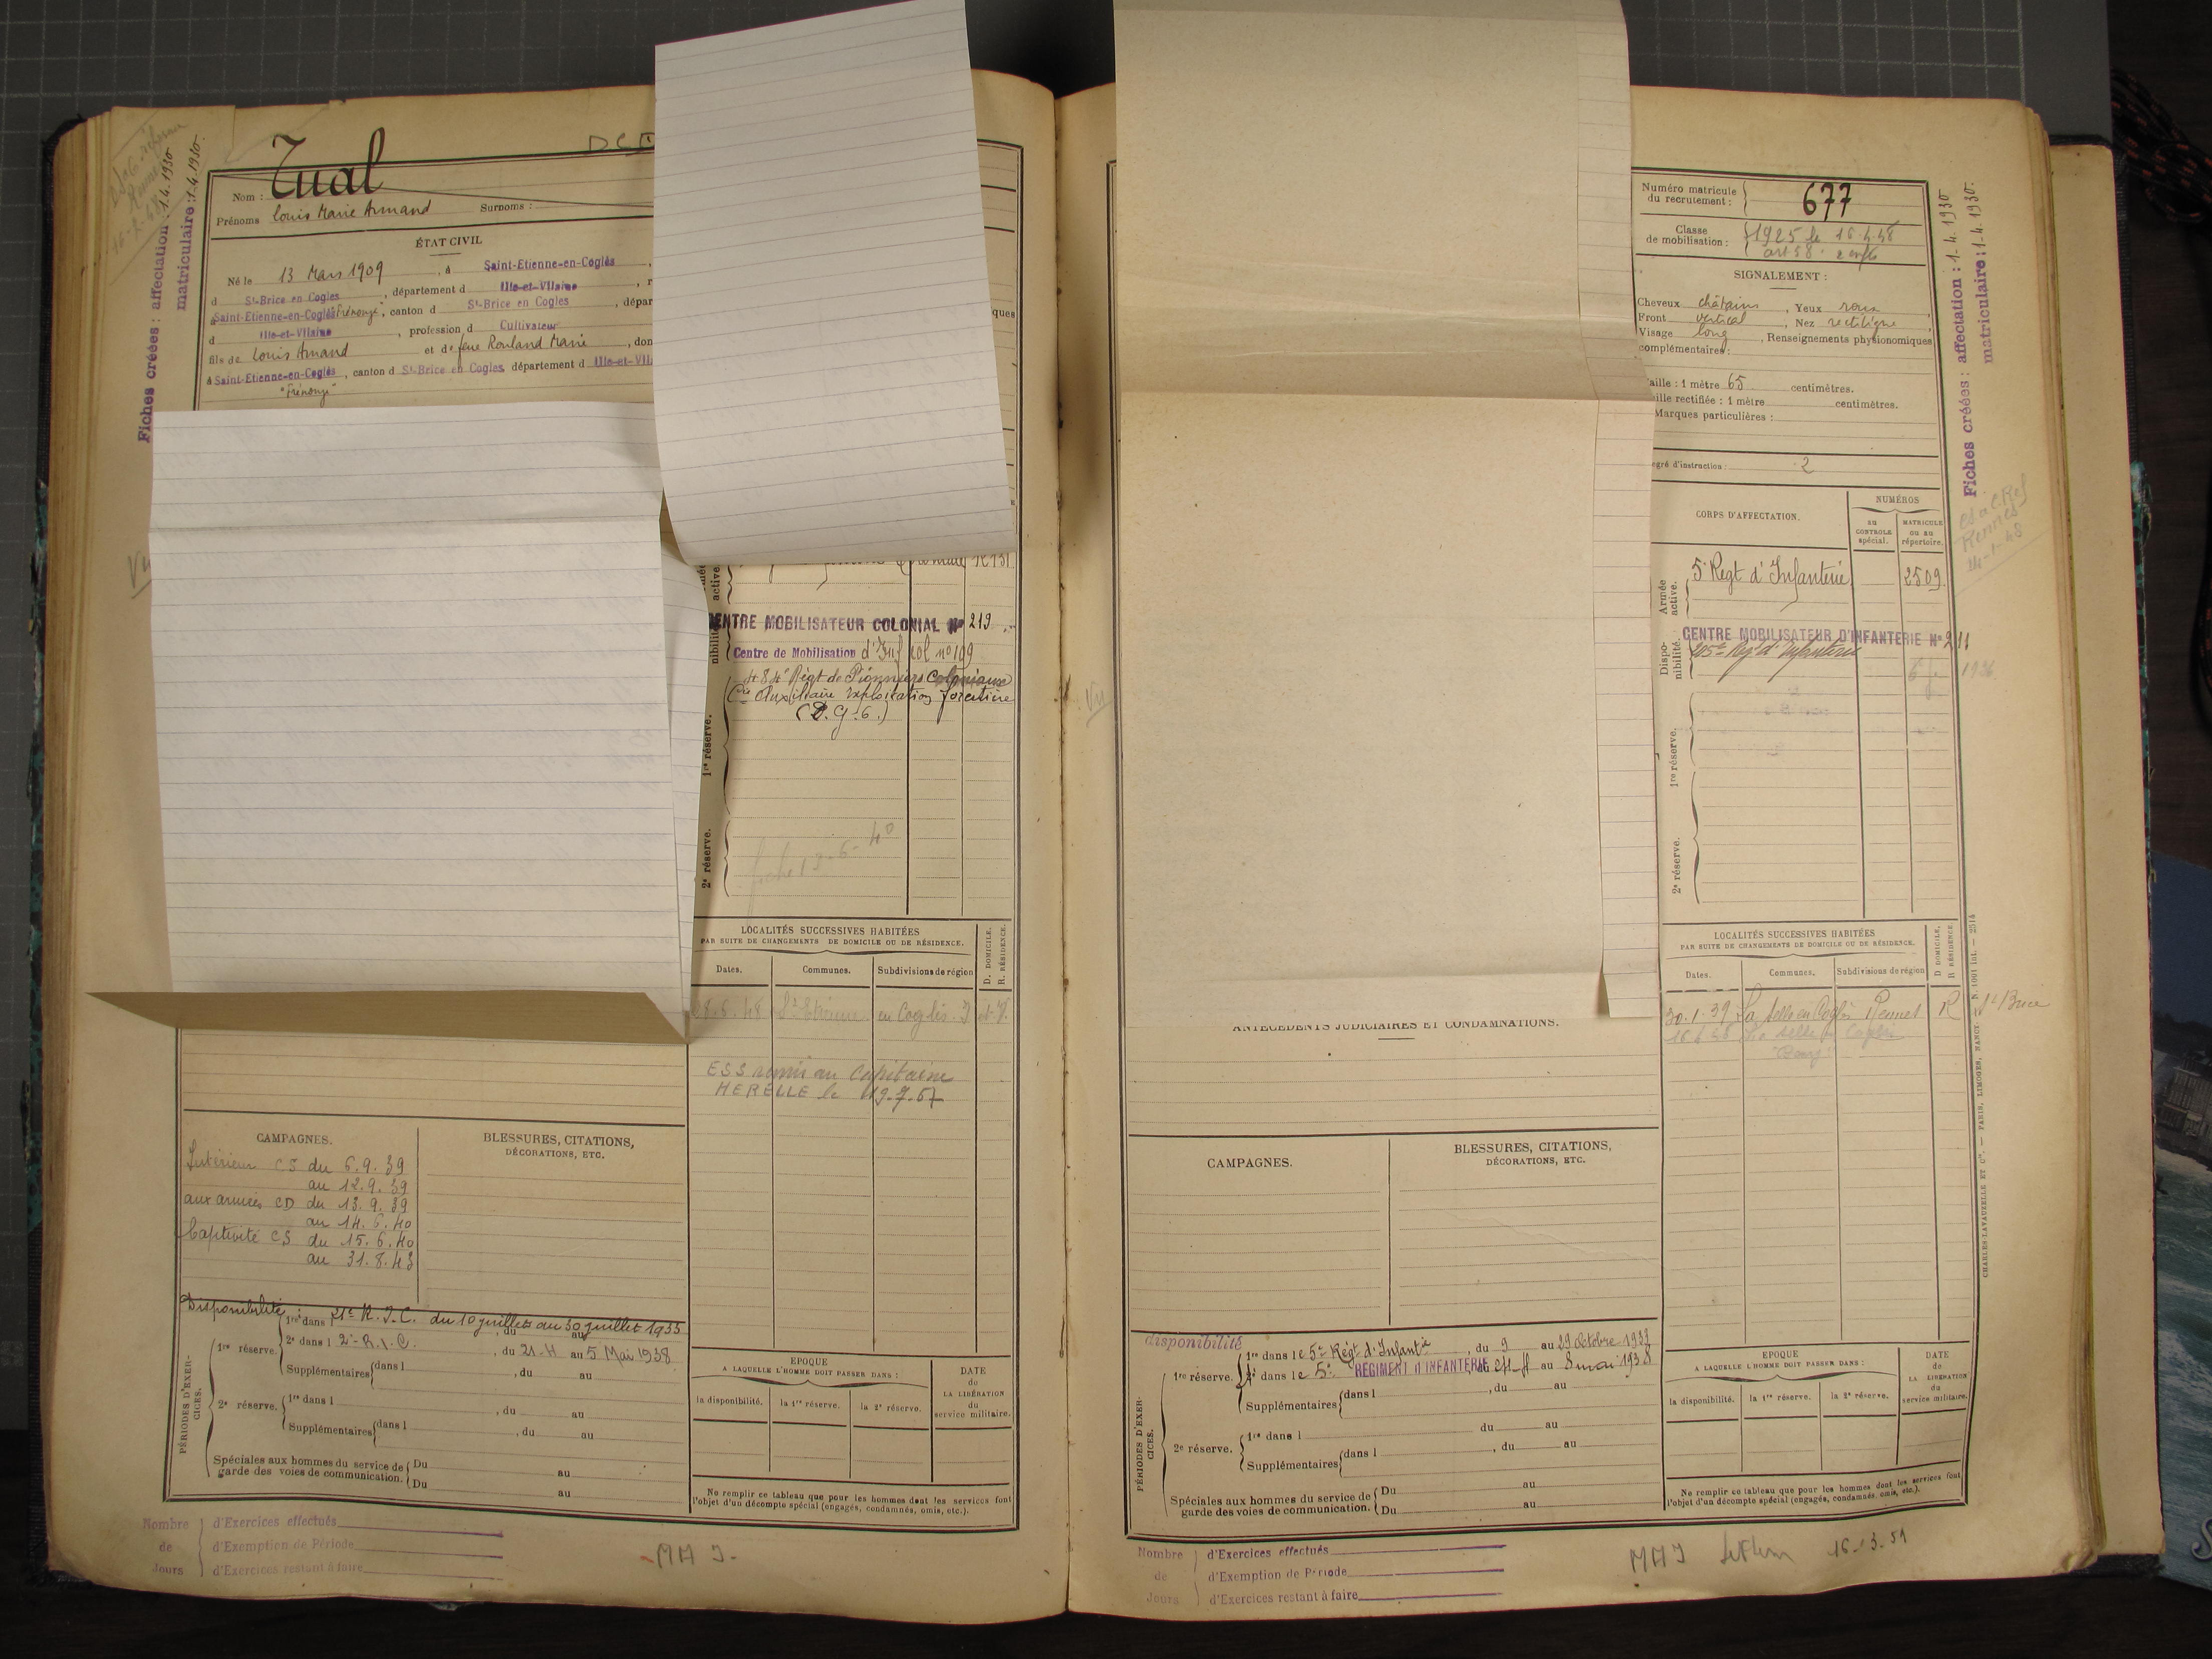 Tual
Nom :
Prénoms Louis Marie Armand Surnoms :
ÉTAT CIVIL
Né le 13 Mars 1909, à Saint-Etienne-en-Coglès,
d St-Brice en Cogles, département d Ille-et-Vilaine, r
à Saint-Etienne-en-Coglès, canton d St-Brice en Cogles, dépar
d Ille-et-Vilaine, profession d Cultivateur
fils de Louis Amand et de feue Rouland Marie, don
à Saint-Etienne-en-Coglès, canton d St-Brice en Cogles, département d Ille-et-Vil
Fiches créées : affectation : 1.4.1930
matriculaire : 1.4.1930.
Vu
ques
active.
CENTRE MOBILISATEUR COLONIAL No 219
Centre de Mobilisation d'Inf col no 199
484e Régt de Pionniers Coloniaux
Cie Auxiliaire Exploitation forestière
nibilité.
1re réserve.
2e réserve.
fiche 13-6-40
LOCALITÉS SUCCESSIVES HABITÉES
PAR SUITE DE CHANGEMENTS DE DOMICILE OU DE RÉSIDENCE.
D. DOMICILE.
R. RÉSIDENCE.
Dates. Communes. Subdivisions de région
28.6.48 St Etienne en Coglès
ESS remis au Capitaine
HERELLE le 19.7.67
CAMPAGNES.
Intérieur CS du 6.9.39
au 12.9.39
aux armées CD du 13.9.39
au 14.6.40
Captivité CS du 15.6.40
au 31.8.43
BLESSURES, CITATIONS,
DÉCORATIONS, ETC.
PÉRIODES D'EXERCICES.
Disponibilité :
1re dans 21e R.I.C. du 10 juillet au 30 juillet 1933
1re réserve. 2e dans l 2e R.I.C., du 21-4 au 5 Mai 1938
Supplémentaires dans l , du au
2e réserve. 1re dans l , du au
Supplémentaires dans l , du au
Spéciales aux hommes du service de garde des voies de communication. Du au
Du au
EPOQUE
A LAQUELLE L'HOMME DOIT PASSER DANS :
la disponibilité. la 1re réserve. la 2e réserve.
DATE
de
LA LIBÉRATION
du
service militaire.
Ne remplir ce tableau que pour les hommes dont les services font
l'objet d'un décompte spécial (engagés, condamnés, omis, etc.).
Nombre d'Exercices effectués
de d'Exemption de Période
Jours d'Exercices restant à faire
MAJ
Numéro matricule
du recrutement : 677
Classe
de mobilisation : 1925 le 16.4.58
SIGNALEMENT :
Cheveux châtains, Yeux roux
Front vertical, Nez rectiligne
Visage long, Renseignements physionomiques
complémentaires :
aille : 1 mètre 65 centimètres.
ille rectifiée : 1 mètre centimètres.
Marques particulières :
egré d'instruction : 2
CORPS D'AFFECTATION.
NUMÉROS
AU CONTROLE spécial.
MATRICULE ou au répertoire.
Armée active.
5e Régt d'Infanterie 2509
Disponibilité.
CENTRE MOBILISATEUR D'INFANTERIE No 211
1re réserve.
2e réserve.
Fiches créées : affectation : 1.4.1930
matriculaire : 1.4.1930.
Vu
LOCALITÉS SUCCESSIVES HABITÉES
PAR SUITE DE CHANGEMENTS DE DOMICILE OU DE RÉSIDENCE.
D DOMICILE.
R RÉSIDENCE.
Dates. Communes. Subdivisions de région
30.1.39 La Selle en Coglès Rennes R St Brice
ANTÉCÉDENTS JUDICIAIRES ET CONDAMNATIONS.
CAMPAGNES.
BLESSURES, CITATIONS,
DÉCORATIONS, ETC.
PÉRIODES D'EXERCICES.
disponibilité
1re dans le 5e Régt d'Infantie, du 9 au 29 Octobre 1932
1re réserve. dans le 5e RÉGIMENT D'INFANTERIE au 8 mai 1938
Supplémentaires dans l , du au
2e réserve. 1re dans l du au
Supplémentaires dans l , du au
Spéciales aux hommes du service de garde des voies de communication. Du au
Du au
EPOQUE
A LAQUELLE L'HOMME DOIT PASSER DANS :
la disponibilité. la 1re réserve. la 2e réserve.
DATE
de
LA LIBÉRATION
du
service militaire.
Ne remplir ce tableau que pour les hommes dont les services font
l'objet d'un décompte spécial (engagés, condamnés, omis, etc.).
CHARLES-LAVAUZELLE ET Cie. — PARIS, LIMOGES, NANCY.
Nombre d'Exercices effectués
de d'Exemption de Période
Jours d'Exercices restant à faire
MAJ 16-3-51